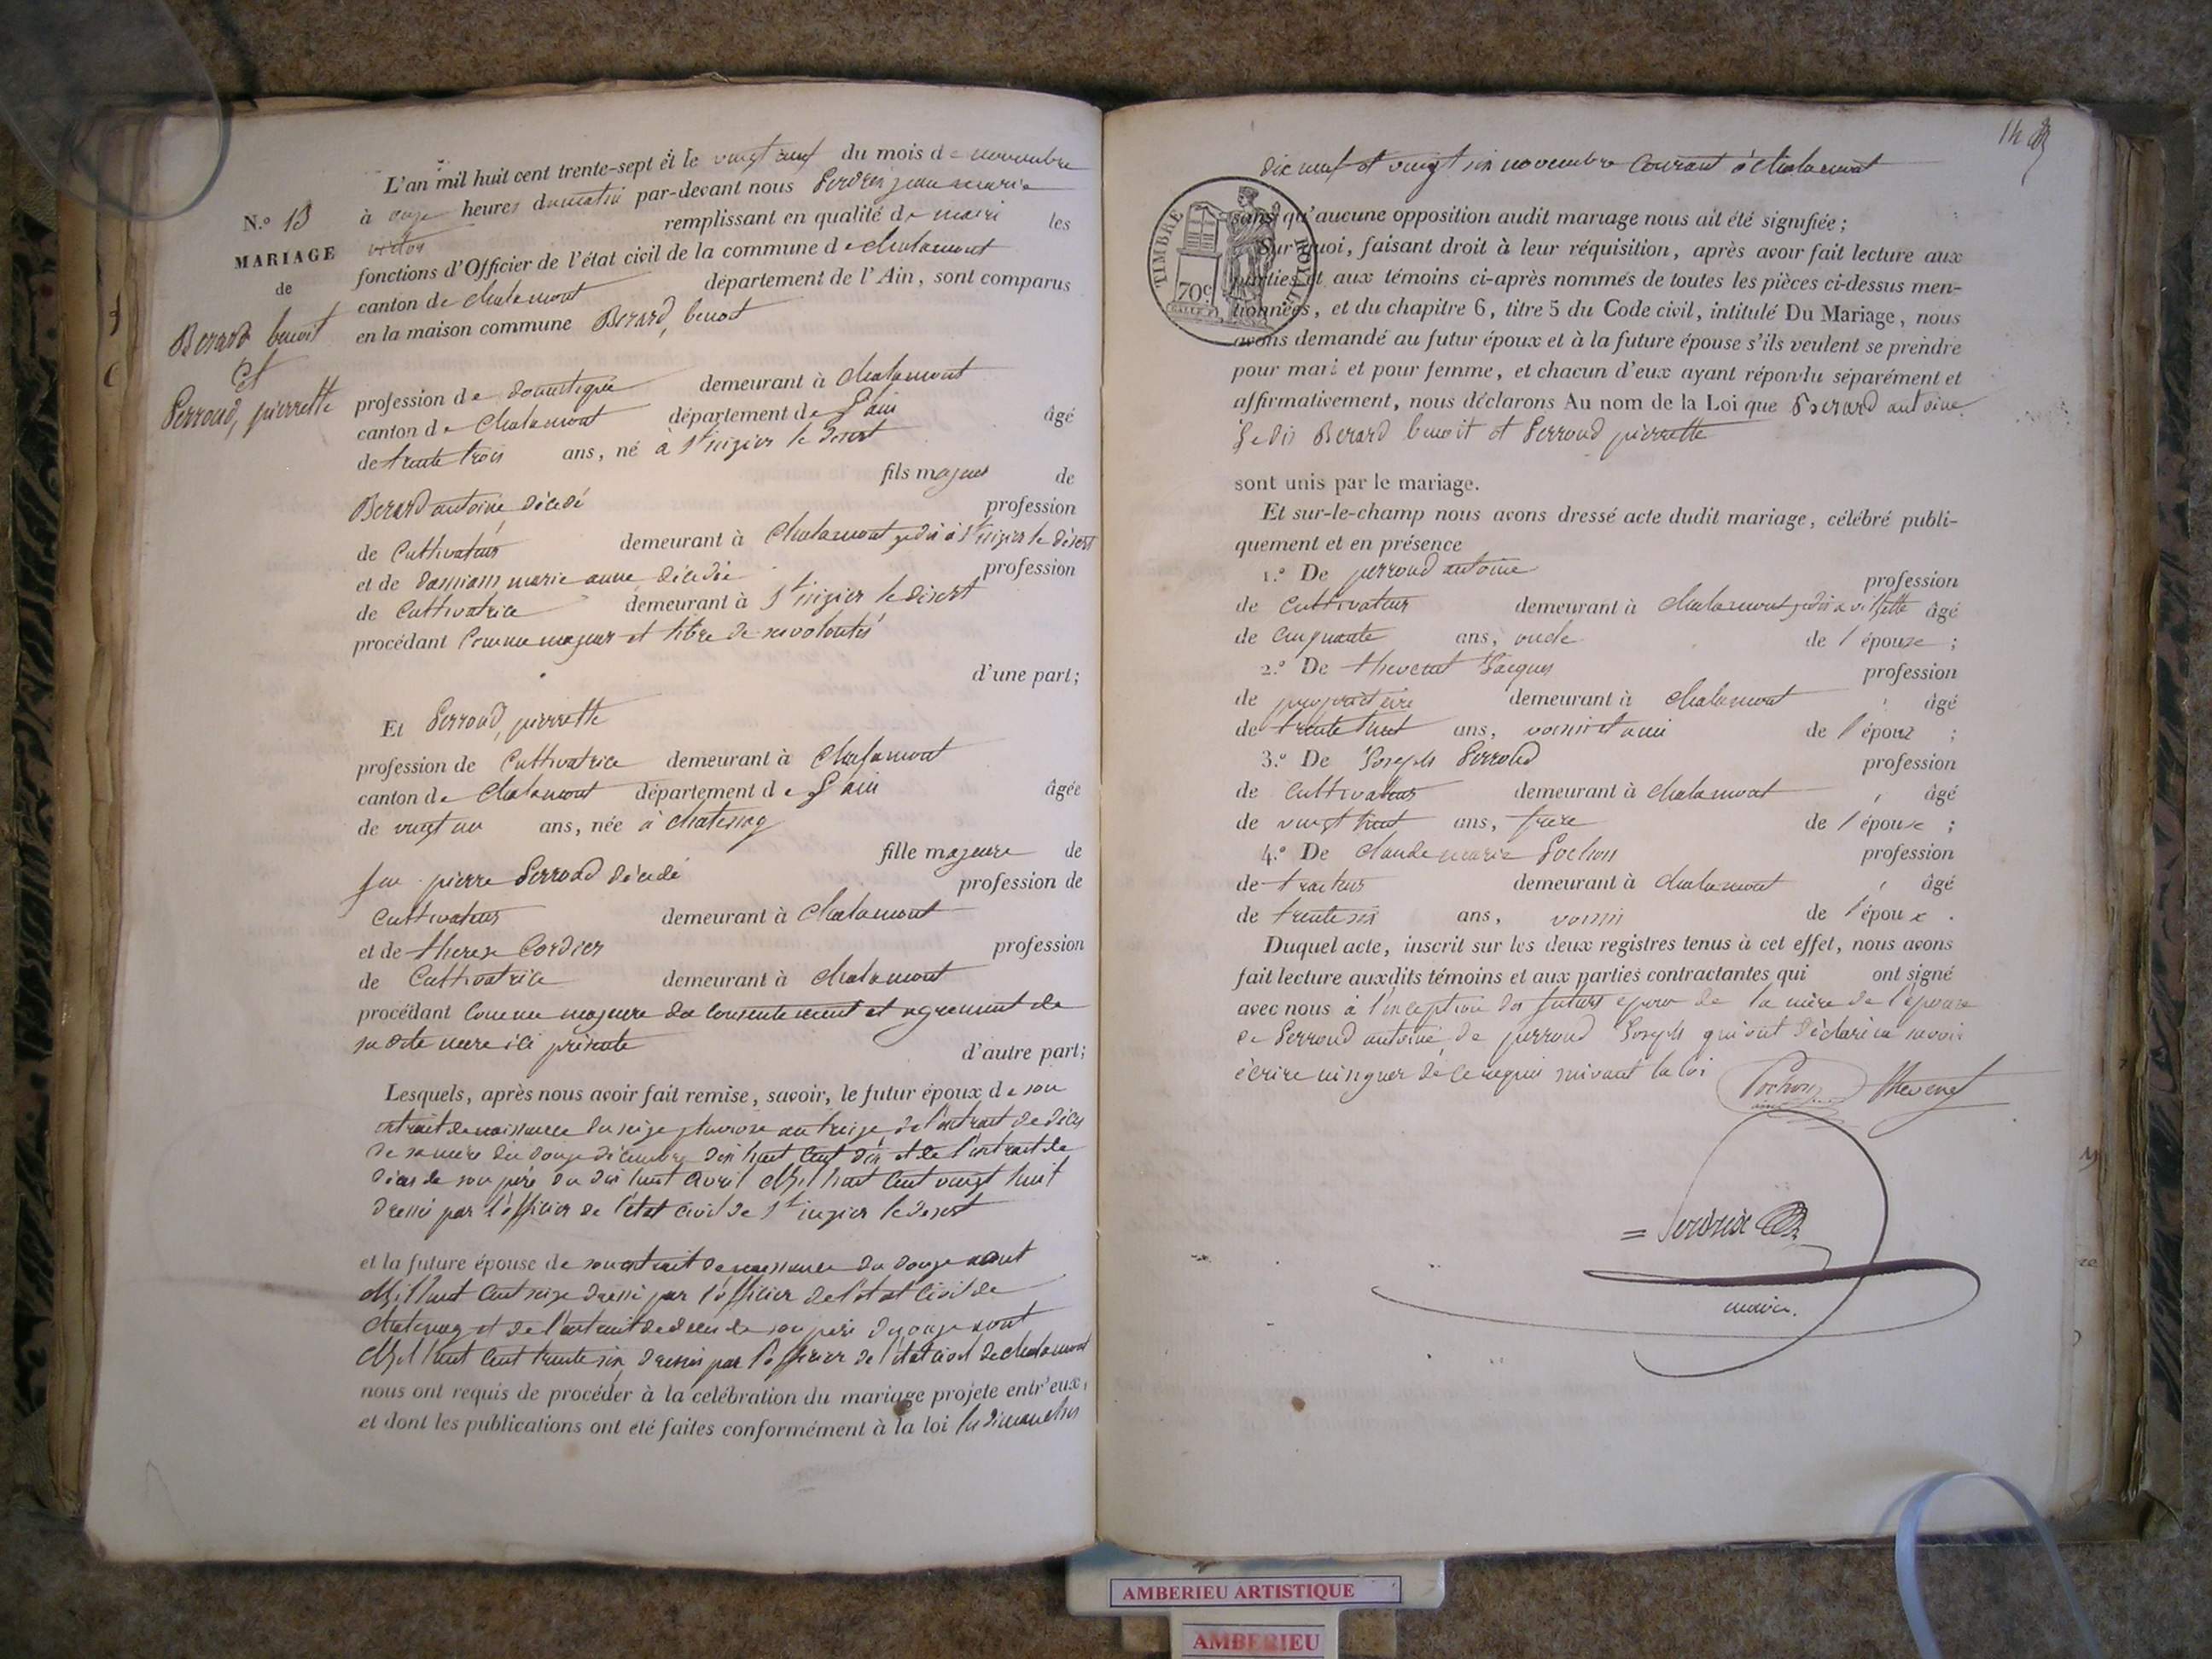 N.° 13
MARIAGE
de
Berard benoit
et
Perroud, pierrette
L'an mil huit cent trente-sept et le vingt neuf du mois de novembre
à onze heures du matin par-devant nous Perdrix jean marie
victor remplissant en qualité de maire les
fonctions d'Officier de l'état civil de la commune de chalamont
canton de chalamont département de l'Ain, sont comparus
en la maison commune Berard, benoit
profession de domestique demeurant à chalamont
canton de chalamont département de l'ain âgé
de trente trois ans, né à St nizier le desert
fils majeur de
Berard antoine décédé profession
de Cultivateur demeurant à chalamont jadis à St nizier le désert
et de marie anne décédée profession
de Cultivatrice demeurant à St nizier le désert
procédant Comme majeur et libre de ses volontés
d'une part;
Et Perroud, pierrette
profession de Cultivatrice demeurant à chalamont
canton de chalamont département de l'ain âgée
de vingt un ans, née à chatenay
fille majeure de
feu pierre Perroud décédé profession de
Cultivateur demeurant à chalamont
et de therese Cordier profession
de Cultivatrice demeurant à chalamont
procédant Comme majeure du consentement et agrement de
sa dite mere ici présente d'autre part;
Lesquels, après nous avoir fait remise, savoir, le futur époux de son
extrait de naissance du seize pluviose an treize de l'extrait de décés
de sa mère du douze décembre dix huit cent dix et de l'extrait de
décés de son père du dix huit avril Mil huit cent vingt huit
dressés par l'officier de l'état civil de St nizier le desert
et la future épouse de son extrait de naissance du douze aout
Mil huit cent seize dressé par l'officier de l'état civil de
chatenay et de l'extrait de décés de son père du onze aout
Mil huit cent trente six dressés par l'officier de l'état civil de chalamont
nous ont requis de procéder à la célébration du mariage projeté entr'eux,
et dont les publications ont été faites conformément à la loi les dimanches
14
dix neuf et vingt six novembre courant à chalamont
TIMBRE ROYAL
70c
sans qu'aucune opposition audit mariage nous ait été signifiée;
Sur quoi, faisant droit à leur réquisition, après avoir fait lecture aux
parties et aux témoins ci-après nommés de toutes les pièces ci-dessus men-
tionnées, et du chapitre 6, titre 5 du Code civil, intitulé Du Mariage, nous
avons demandé au futur époux et à la future épouse s'ils veulent se prendre
pour mari et pour femme, et chacun d'eux ayant répondu séparément et
affirmativement, nous déclarons Au nom de la Loi que Berard antoine
Je dis Berard benoit et Perroud pierrette
sont unis par le mariage.
Et sur-le-champ nous avons dressé acte dudit mariage, célébré publi-
quement et en présence
1.° De perroud antoine profession
de Cultivateur demeurant à chalamont jadis à villette âgé
de Cinquante ans, oncle de l'épouse;
2.° De thevenet Jacques profession
de propriétaire demeurant à chalamont, âgé
de trente huit ans, voisin et ami de l'époux;
3.° De Joseph Perroud profession
de Cultivateur demeurant à chalamont, âgé
de vingt huit ans, frère de l'épouse;
4.° De claude marie Pochon profession
de traiteur demeurant à chalamont, âgé
de trente six ans, voisin de l'époux.
Duquel acte, inscrit sur les deux registres tenus à cet effet, nous avons
fait lecture auxdits témoins et aux parties contractantes qui ont signé
avec nous à l'exception des futurs époux de la mère de l'épouse
de Perroud antoine, de perroud Joseph qui ont déclaré ne savoir
écrire ni signer de ce requis suivant la loi
Pochon Thevenet
Perdrix
maire.
AMBERIEU ARTISTIQUE
AMBERIEU